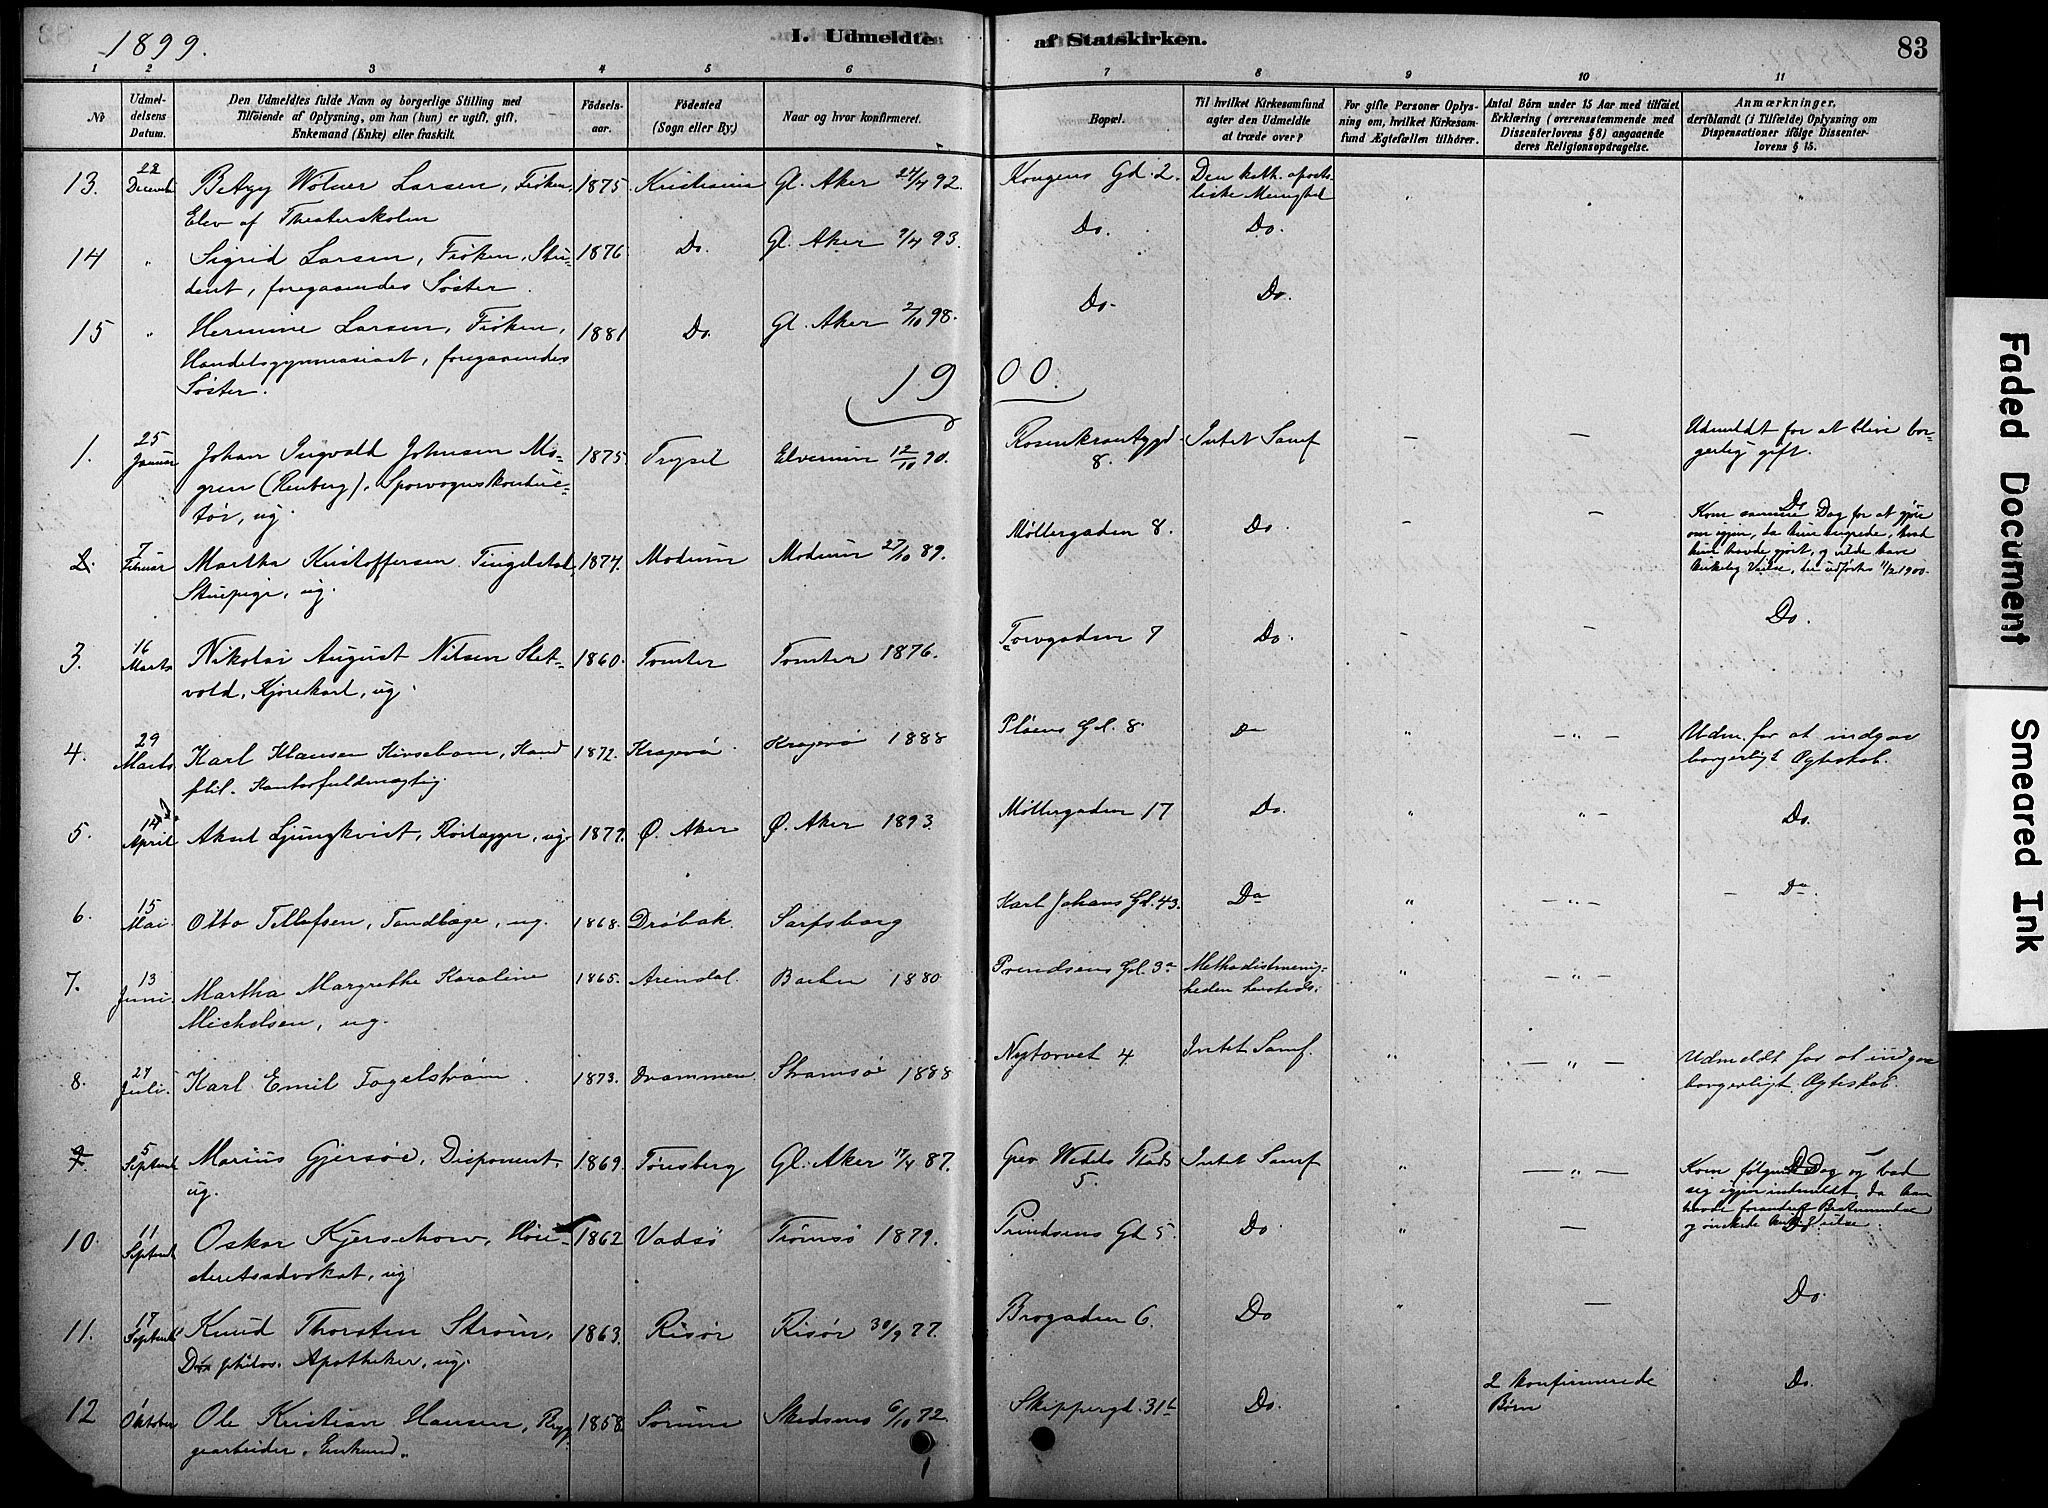 1899.
I. Udmeldte af Statskirken.
83
1 2 3 4 5 6 7 8 9 10 11
No
Udmeldelsens Datum.
Den Udmeldtes fulde Navn og borgerlige Stilling med
Tilføiende af Oplysning, om han (hun) er ugift, gift,
Enkemand (Enke) eller fraskilt.
Fødselsaar.
Fødested
(Sogn eller By.)
Naar og hvor konfirmeret.
Bopæl.
Til hvilket Kirkesamfund
agter den Udmeldte
at træde over?
For gifte Personer Oplysning
om, hvilket Kirkesamfund
Ægtefællen tilhører.
Antal Børn under 15 Aar med tilføiet
Erklæring (overensstemmende med
Dissenterlovens § 8) angaaende
deres Religionsopdragelse.
Anmærkninger,
deriblandt (i Tilfælde) Oplysning om
Dispensationer ifølge Dissenterlovens
§ 15.
13. 22 Decemb Betzy Wolner Larsen, Frøken, 1875. Kristiania Gl. Aker 24/4 92. Kongens Gd. 2. Den kath. apostoliske Menighed
Elev af Theaterskolen
14 " Sigrid Larsen, Frøken, Stu- 1876 Do. Gl. Aker 9/4 93. Do. Do.
dent, foregaaendes Søster.
15 " Hermine Larsen, Frøken, 1881 Do. Gl. Aker 2/10 98. Do. Do.
Handelsgymnasiast, foregaaendes
Søster.
1900.
1. 25 Januar Johan Ingvald Johnsen Mo- 1875. Trysil Elverum 12/10 90. Rosenkrantzgd. 8. Intet Samf — — Udmeldt for at blive bor-
gren (Renberg), Sporvognskonduc- gerlig gift.
tør, ug.
2. 7 Februar Martha Kristoffersen Tingelstad, 1874. Modum Modum 27/10 89. Møllergaden 8. Do. — — Do
Stuepige, ug.
Kom samme Dag for at gjøre
om igjen, da hun angrede, hvad
hun havde gjort, og vilde have
kirkelig Vielse, der udførtes 11/2 1900.
3. 16 Marts Nikolai August Nilsen Slet- 1860. Tomter Tomter 1876. Torvgaden 7 Do. — — Do.
vold, Kjørekarl, ug.
4. 29 Marts Karl Klausen Kirsebom, Kand 1872. Kragerø. Kragerø 1888 Pløens Gd. 8 Do " — " — Udm. for at indgaa
phil. Kontorfuldmægtig. borgerligt Ægteskab.
5. April Aksel Ljungkvist, Rørlægger, ug. 1879. Ø. Aker Ø. Aker 1893. Møllergaden 17 Do. " " — Do.
6. 15 Mai Otto Tellefsen, Tandlæge, ug. 1868. Drøbak. Sarpsborg Karl Johans Gd. 43. Do " — " — — Do
7. 13 Juni. Martha Margrethe Karoline 1865. Arendal. Barbu 1880 Prindsens Gd. 3a Methodistmenig-
Michelsen, ug. heden hersteds.
" — " — "
8. 27 Juli. Karl Emil Fogelstrøm. 1873. Drammen. Strømsø 1888 Nytorvet 4 Intet Samf. " — " — Udmeldt for at indgaa
borgerligt Ægteskab.
9. 5 Septemb Marius Gjersøe, Disponent, 1869. Tønsberg Gl. Aker 17/4 87. Grev Wedels Plads 5. Intet Samf " — " — Do
ug.
Kom følgende Dag og bad
sig igjen indmeldt, da han
havde forandret Bestemmelse
og ønskede kirkelig Vielse.
10. 11 Septemb Oskar Kjerschow, Høie- 1862 Vadsø Tromsø 1879. Prindsens Gd 5. Do " — Do
steretsadvokat, ug
11. 17 Septemb Knud Thorsten Strøm, 1863. Risør Risør 30/9 77. Brogaden 6. Do " — Do.
philos. Apotheker, ug.
12 Oktober Ole Kristian Hansen, Bryg- 1858. Sørum Skedsmo 6/10 72. Skippergd. 31b Do. " 2 konfirmerede Do.
gearbeider, Enkemd. Børn
Faded Document
Smeared Ink